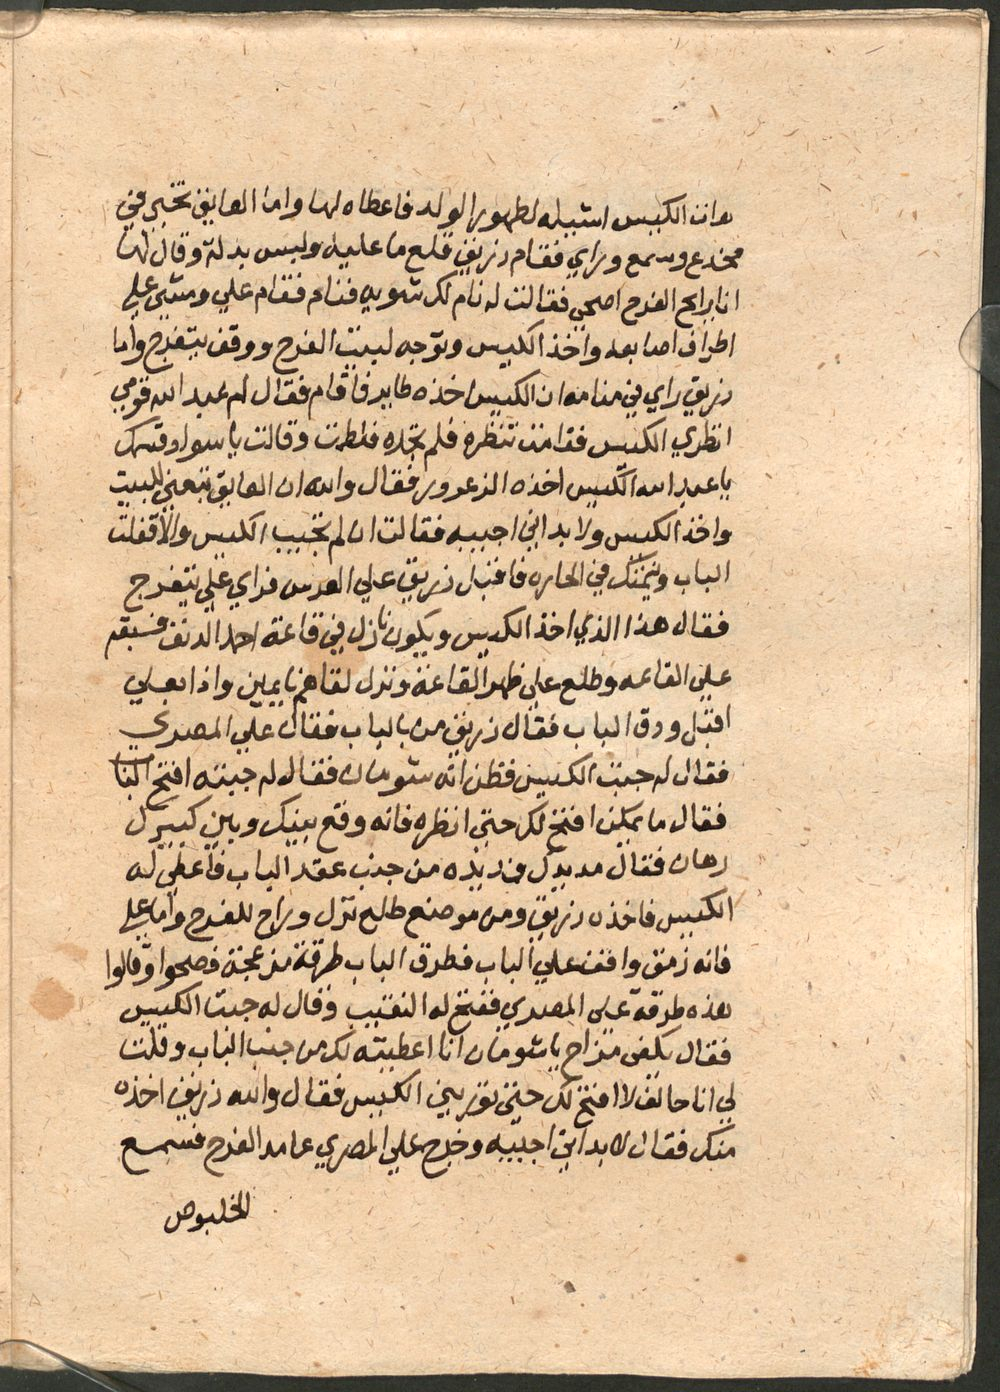 هات الكيس اشيله لطهور الولد فاعطاه لها واما العايق تخبي في
مخدع وسمع وراي فقام زريق قلع ما عليه ولبس بدلة وقال لها
انا رايح الفرح اصحي فقالت له نام لك شويه فنام فقام علي ومشي علي
اطراف اصابعه واخذ الكيس وتوجه لبيت الفرح ووقف يتفرج واما
زريق راي في منامه ان الكيس اخذه طاير فافاق فقال لام عبد الله قومي
انظري الكيس فقامت تنظره فلم تجده فلطمت وقالت يا سواد وقتك
يا عبد الله الكيس اخذه الزعرور فقال والله ان العايق تبعني للبيت
واخذ الكيس ولا بد اني اجيبه فقالت ان لم تجيب الكيس والا قفلت
الباب ونيمتك في الحاره فاقبل زريق علي العرس فراي علي يتفرج
فقال هذا الذي اخذ الكيس ويكون نازل في قاعة احمد الدنف فسبقه
علي القاعه وطلع علي ظهر القاعة ونزل لقاهم نايمين واذا بعلي
اقبل ودق الباب فقال زريق من بالباب فقال علي المصري
فقال له جبت الكيس فظن انه شومان فقال له جبته افتح الباب
فقال ما يمكن افتح لك حتي انظره فانه وقع بينك وبين كبيرك
رهان فقال مد يدك فمد يده من جنب عقد الباب فاعطي له
الكيس فاخذه زريق ومن موضع طلع نزل وراح للفرح واما علي
فانه زمق واقف علي الباب فطرق الباب طرقة مزعجة فصحوا وقالوا
هذه طرقة علي المصري ففتح له النقيب وقال له جبت الكيس
فقال يكفي مزاح يا شومان انا اعطيته لك من جنب الباب وقلت
لي انا حالف لا افتح لك حتي توريني الكيس فقال والله زريق اخذه
منك فقال لا بد اني اجيبه وخرج علي المصري عامد الفرح فسمع
الخلبوص